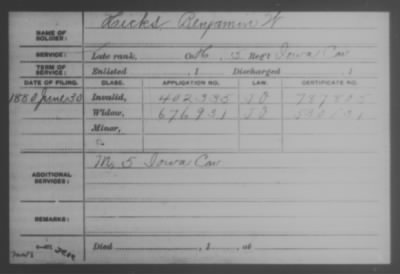 NAME OF SOLDIER: Hicks Benjamin W
SERVICE: Late rank, Co. H, 2 Reg't Iowa Cav
TERM OF SERVICE: Enlisted , 1 Discharged , 1
DATE OF FILING. CLASS. APPLICATION NO. LAW. CERTIFICATE NO.
1880 June 30 Invalid, 402335
Widow, 676931
Minor,
ADDITIONAL SERVICES: M, 5 Iowa Cav
REMARKS:
Died , 1 , at